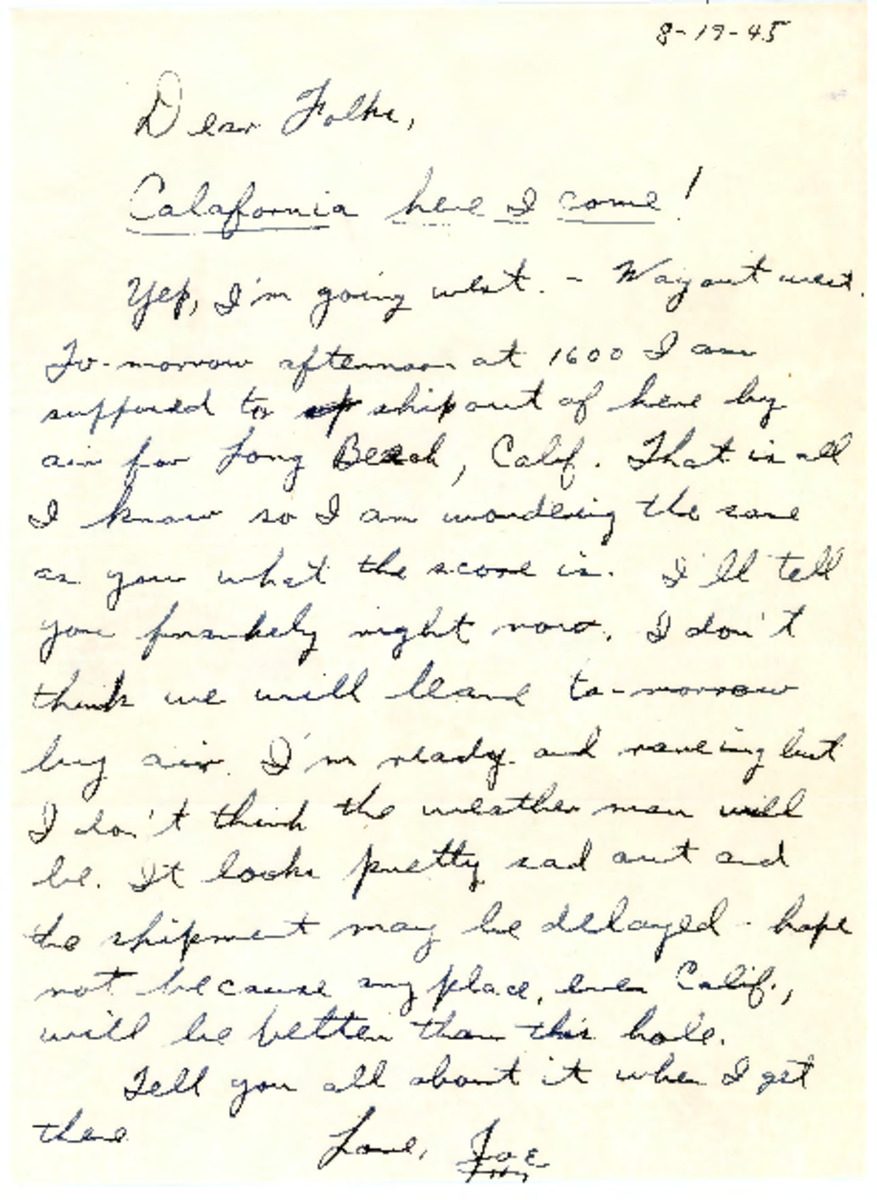 8-19-45
Dear Folks,
Calafornia here I come!
Yep, I'm going west. - Way out west.
To-morrow afternoon at 1600 I am
supposed to ship out of here by
air for Long Beach, Calif. That is all
I know so I am wondering the same
as you what the score is. I'll tell
you frankely right now. I don't
think we will leave to-morrow
by air. I'm ready and raneing but
I don't think the weather man will
be. It looks pretty sad out and
the shipment may be delayed - hope
not because any place, even Calif.,
will be better than this hole.
Tell you all about it when I get
there
Love, Joe